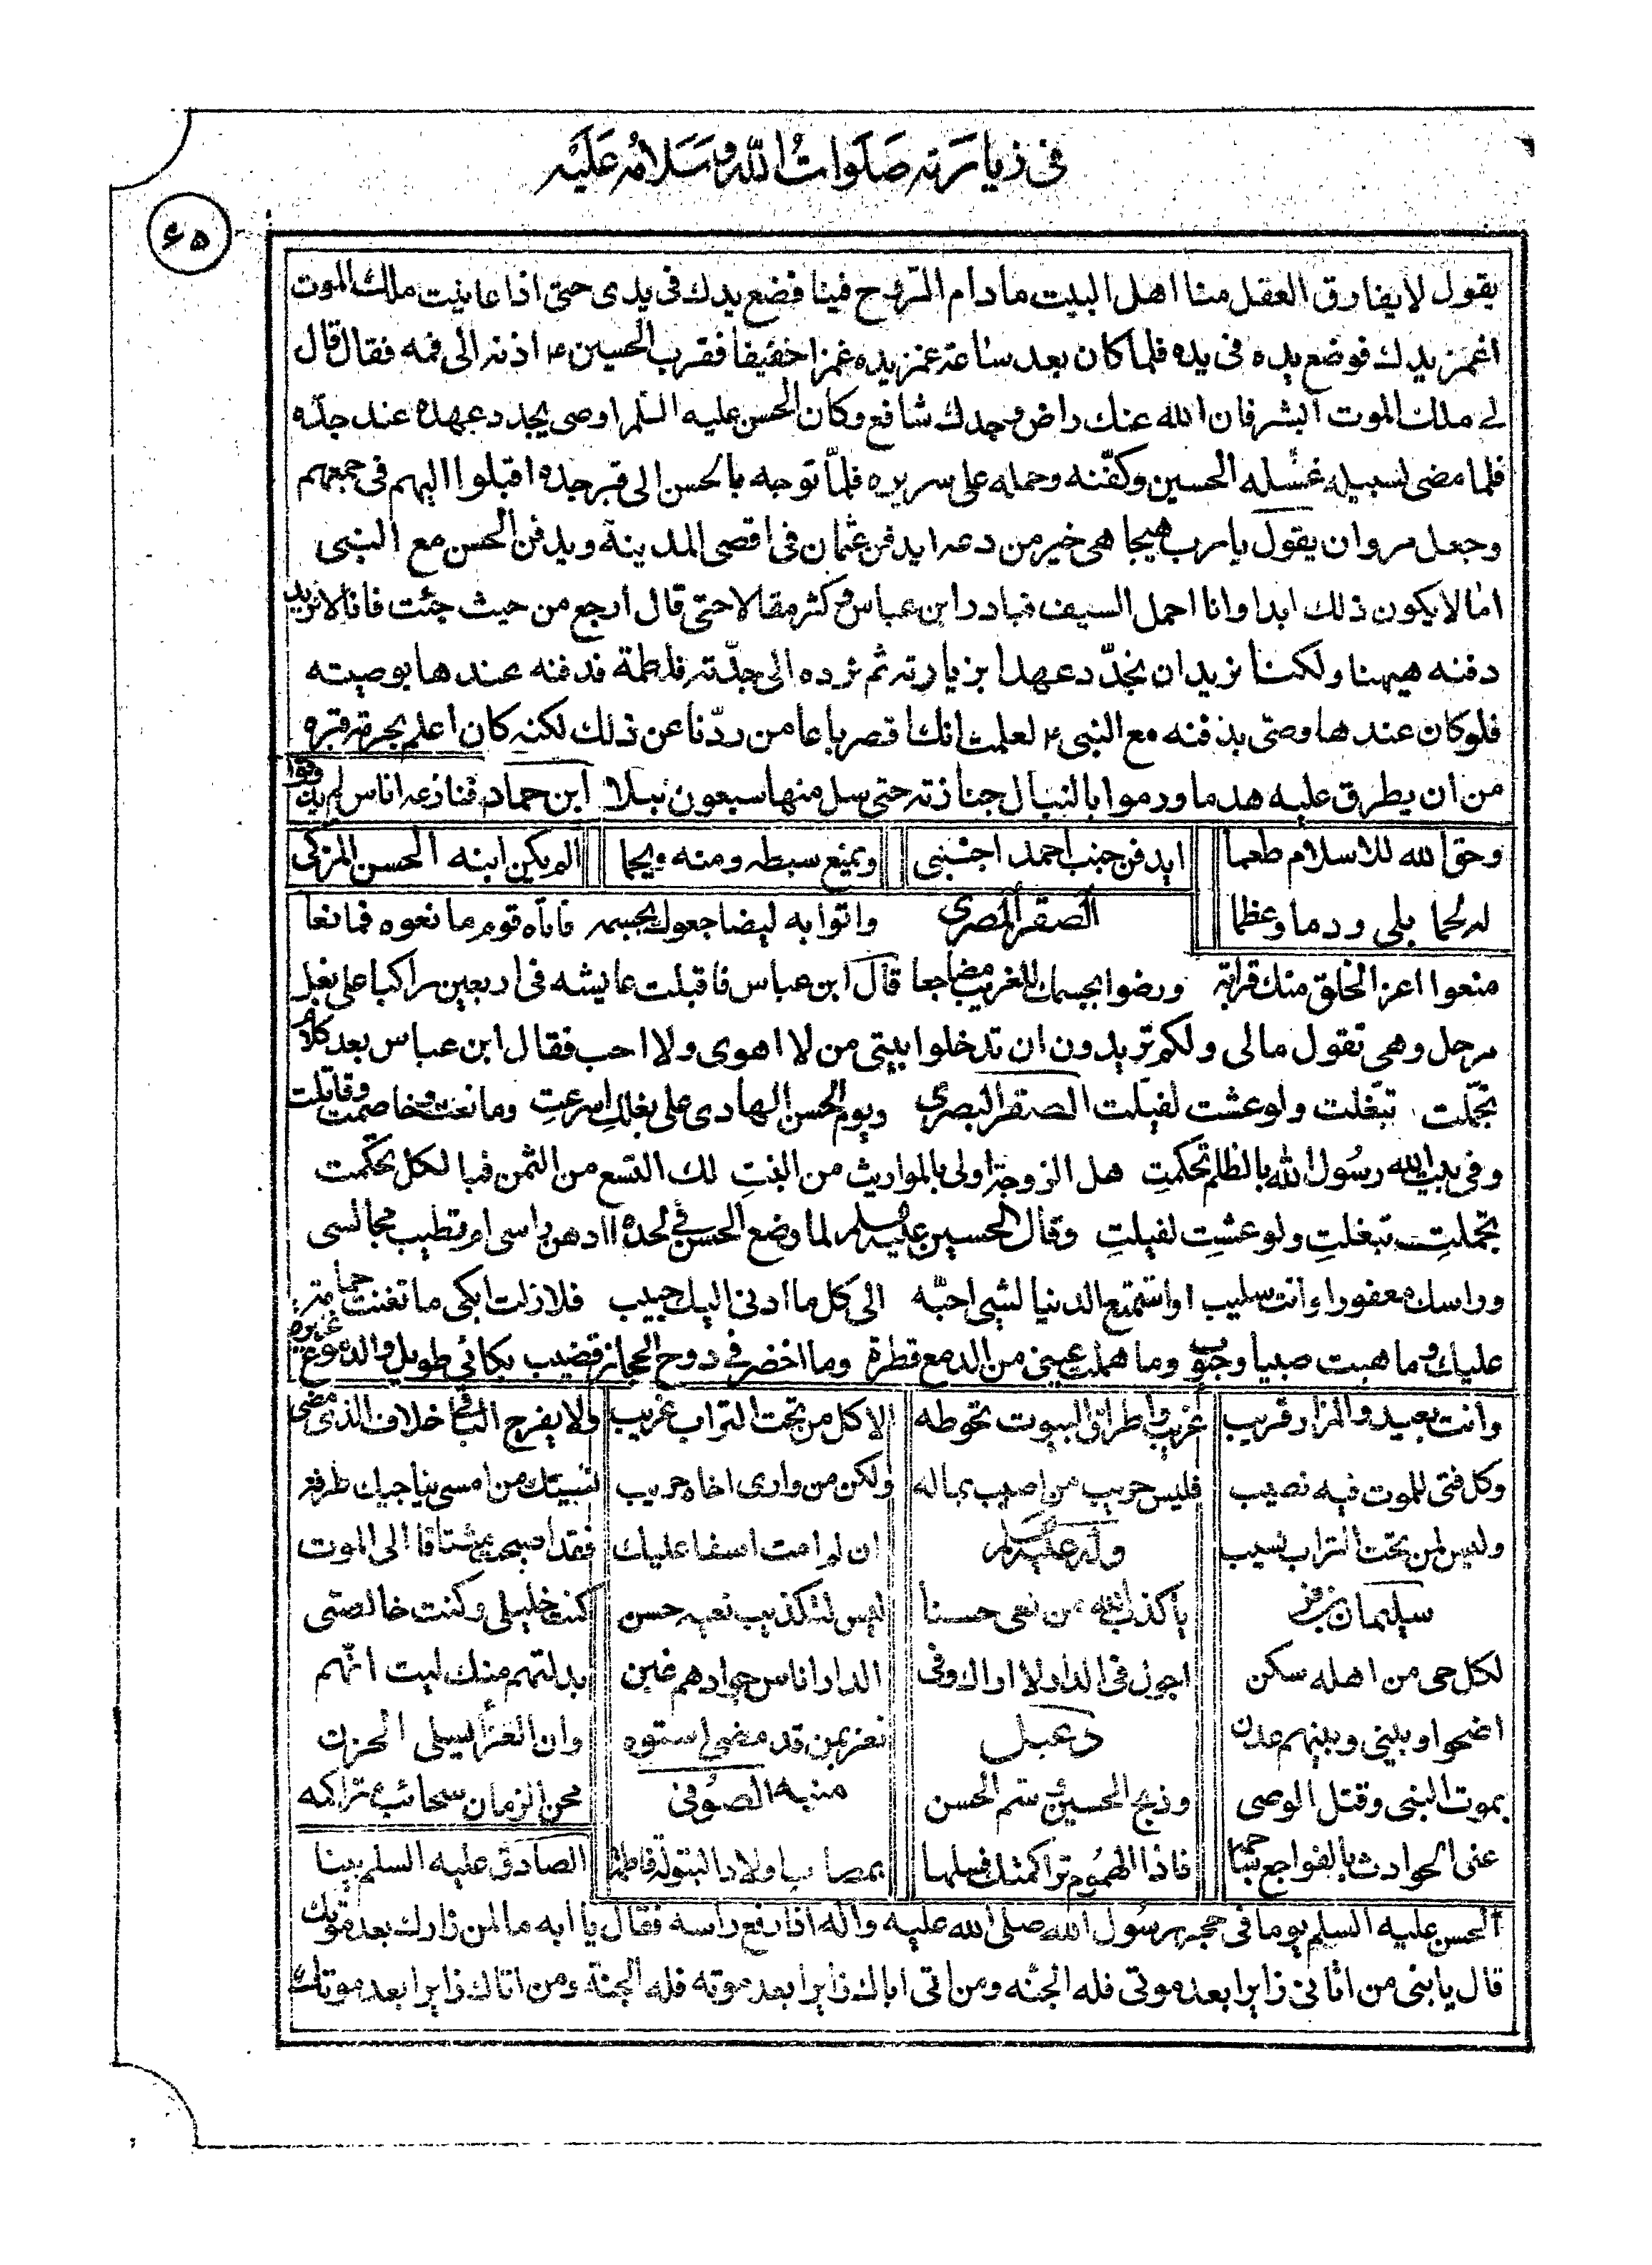 فى زيارته صلوات الله وسلامه عليه
٦٥
يقول لا يفارق العقل منا اهل البيت ما دام الروح فينا فضع يدك فى يدى حتى اذا عاينت ملك الموت
اغمز يدك فوضع يده فى يده فلما كان بعد ساعة غمز يده غمزا خفيفا فقرب الحسين ع اذنه الى فمه فقال قال
لى ملك الموت ابشر فان الله عنك راض وجدك شافع وكان الحسن عليه السلم اوصى يجدد عهده عند جدّه
فلما مضى لسبيله غسّله الحسين وكفّنه وحمله على سريره فلمّا توجه بالحسن الى قبر جده اقبلوا اليهم فى جمعهم
وجعل مروان يقول يا رب هيجا هى خير من دعه ايدفن عثمان فى اقصى المدينة ويدفن الحسن مع النبى
اما لا يكون ذلك ابدا وانا احمل السيف فبادر ابن عباس وكثر مقالا حتى قال ارجع من حيث جئت فانا لا نريد
دفنه هيهنا ولكنا نريد ان نجدّد عهدا بزيارته ثم نرده الى جدّته فاطمة فدفنه عندها بوصيته
فلو كان عندها وصى بدفنه مع النبى ع لعلمت انك اقصر باعا من ردّنا عن ذلك لكنه كان اعلم بحرمة قبره
من ان يطرق عليه هدما ورموا بالنبال جنازته حتى سل منها سبعون نبلا ابن حماد فنازعه اناس لم يك وقوا
وحق الله للاسلام طعما ايدفن جنب احمد اجنبى ويمنع سبطه ومنه ويحا الم يكن ابنه الحسن المزكى
له لحما بلى ودما وعظما الصقر المصرى واتوا به ليضاجعوك بجسمه فاتاه قوم مانعوه فمانعا
منعوا اعز الخلق منك قرابة ورضوا بجسمك للغريب مضاجعا قال ابن عباس فاقبلت عايشه فى اربعين راكبا على بغل
مرحل وهى تقول مالى ولكم تريدون ان تدخلوا بيتى من لا اهوى ولا احب فقال ابن عباس بعد كلام
تجمّلت تبغّلت ولو عشت لفيلت الصقر البصرى ويوم الحسن الهادى على بغلك اسرعت ومانعت وخاصمت وقاتلت
وفى بيت رسول الله بالظلم تحكمت هل الزوجة اولى بالمواريث من البنت لك التسع من الثمن فبالكل تحكمت
تجملت تبغلت ولو عشت لفيلت وقال الحسين عليه السلم لما وضع الحسن فى لحده اادهن راسى ام تطيب مجالسى
وراسك معفور وانت سليب او استمتع الدنيا لشى احبّه الى كل ما ادنى اليك حبيب فلا زلت ابكى ما تغنت حمامة
عليك وما هبت صبا وجنوب وما هملت عينى من الدمع قطرة وما اخضر فى دوح الحجاز قضيب بكائى طويل والدموع غزيرة
وانت بعيد والمزار قريب غريب واطراف البيوت تحوطه الا كل من تحت التراب غريب ولا يفرح الباقى خلاف الذى مضى
وكل فتى للموت فيه نصيب فليس حريب من اصيب بماله ولكن من وارى اخاه حريب نسيبك من امسى يناجيك طرفه
وليس لمن تحت التراب نسيب وله عليه السلم ان لم امت اسفا عليك فقد اصبحت مشتاقا الى الموت
سليمان بن قتة يا كذب الله من نعى حسنا ليس لتكذيب نعيه حسن كنت خليلى وكنت خالصتى
لكل حى من اهله سكن اجول فى الدار لا اراك وفى الدار اناس جوارهم غبن بدلتهم منك ليت انهم
اضحوا وبينى وبينهم عدن دعبل تعز بمن قد مضى اسوة وان العزا يسلى الحزن
بموت النبى وقتل الوصى وذبح الحسين وسم الحسن منبه الصوفى محن الزمان سحائب متراكمه
عنى الحوادث بالفواجع فاذا الهموم تراكمتك فسلها بمصاب اولاد البتولة فاطمة الصادق عليه السلم بينا
الحسن عليه السلم يوما فى حجر رسول الله صلى الله عليه واله اذا رفع راسه فقال يا ابه ما لمن زارك بعد موتك
قال يا بنى من اتانى زايرا بعد موتى فله الجنه ومن اتى اباك زايرا بعد موته فله الجنة ومن اتاك زايرا بعد موتك